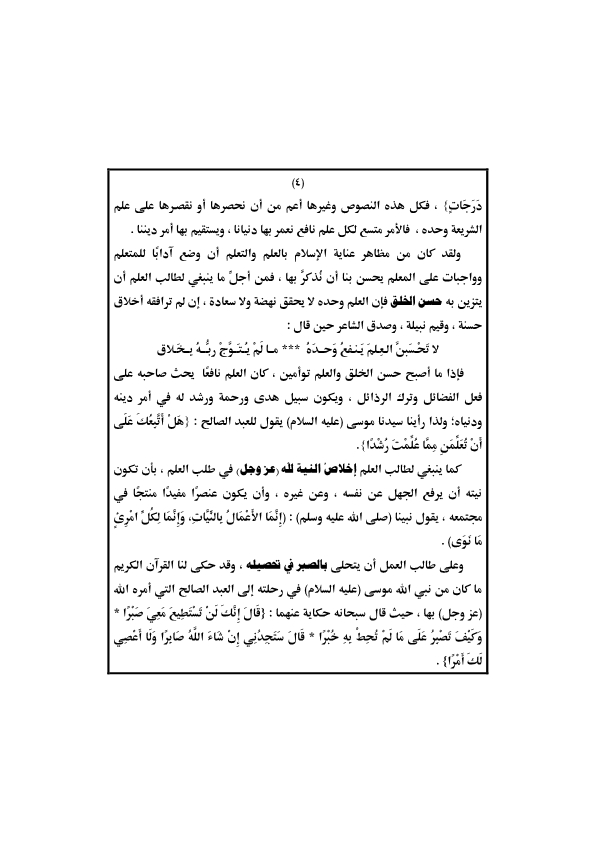 (٤)
دَرَجَاتٍ} ، فكل هذه النصوص وغيرها أعم من أن نحصرها أو نقصرها على علم
الشريعة وحده ، فالأمر متسع لكل علم نافع نعمر بها دنيانا ، ويستقيم بها أمر ديننا .
ولقد كان من مظاهر عناية الإسلام بالعلم والتعلم أن وضع آدابًا للمتعلم
وواجبات على المعلم يحسن بنا أن نُذكرَّ بها ، فمن أجلِّ ما ينبغي لطالب العلم أن
يتزين به حسن الخلق فإن العلم وحده لا يحقق نهضة ولا سعادة ، إن لم ترافقه أخلاق
حسنة ، وقيم نبيلة ، وصدق الشاعر حين قال :
لا تَحْسَبَنَّ العِلمَ يَنفعُ وَحدَهُ *** مـا لَمْ يُـتَـوَّجْ ربُّـهُ بـخَـلاق
فإذا ما أصبح حسن الخلق والعلم توأمين ، كان العلم نافعًا يحث صاحبه على
فعل الفضائل وترك الرذائل ، ويكون سبيل هدى ورحمة ورشد له في أمر دينه
ودنياه؛ ولذا رأينا سيدنا موسى (عليه السلام) يقول للعبد الصالح : {هَلْ أَتَّبِعُكَ عَلَى
أَنْ تُعَلِّمَنِ مِمَّا عُلِّمْتَ رُشْدًا}.
كما ينبغي لطالب العلم إخلاص النية لله (عز وجل) في طلب العلم ، بأن تكون
نيته أن يرفع الجهل عن نفسه ، وعن غيره ، وأن يكون عنصرًا مفيدًا منتجًا في
مجتمعه ، يقول نبينا (صلى الله عليه وسلم) : (إِنَّمَا الأَعْمَالُ بِالنِّيَّاتِ، وَإِنَّمَا لِكُلِّ امْرِئٍ
مَا نَوَى) .
وعلى طالب العمل أن يتحلى بالصبر في تحصيله ، وقد حكى لنا القرآن الكريم
ما كان من نبي الله موسى (عليه السلام) في رحلته إلى العبد الصالح التي أمره الله
(عز وجل) بها ، حيث قال سبحانه حكاية عنهما : {قَالَ إِنَّكَ لَنْ تَسْتَطِيعَ مَعِيَ صَبْرًا *
وَكَيْفَ تَصْبِرُ عَلَى مَا لَمْ تُحِطْ بِهِ خُبْرًا * قَالَ سَتَجِدُنِي إِنْ شَاءَ اللَّهُ صَابِرًا وَلَا أَعْصِي
لَكَ أَمْرًا} .